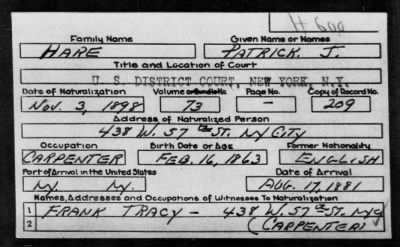 H 600
Family Name Given Name or Names
HARE PATRICK. J.
Title and Location of Court
U. S. DISTRICT COURT, NEW YORK, N.Y.
Date of Naturalization Volume or Bundle No. Page No. Copy of Record No.
NOV. 3, 1898 73 - 209
Address of Naturalized Person
438 W. 57th ST. NY CITY
Occupation Birth Date or Age Former Nationality
CARPENTER FEB. 16, 1863 ENGLISH
Port of Arrival in the United States Date of Arrival
NY. NY. AUG. 17, 1881
Names, Addresses and Occupations of Witnesses To Naturalization
1 FRANK TRACY - 438 W. 57th ST. NYC
2 (CARPENTER)